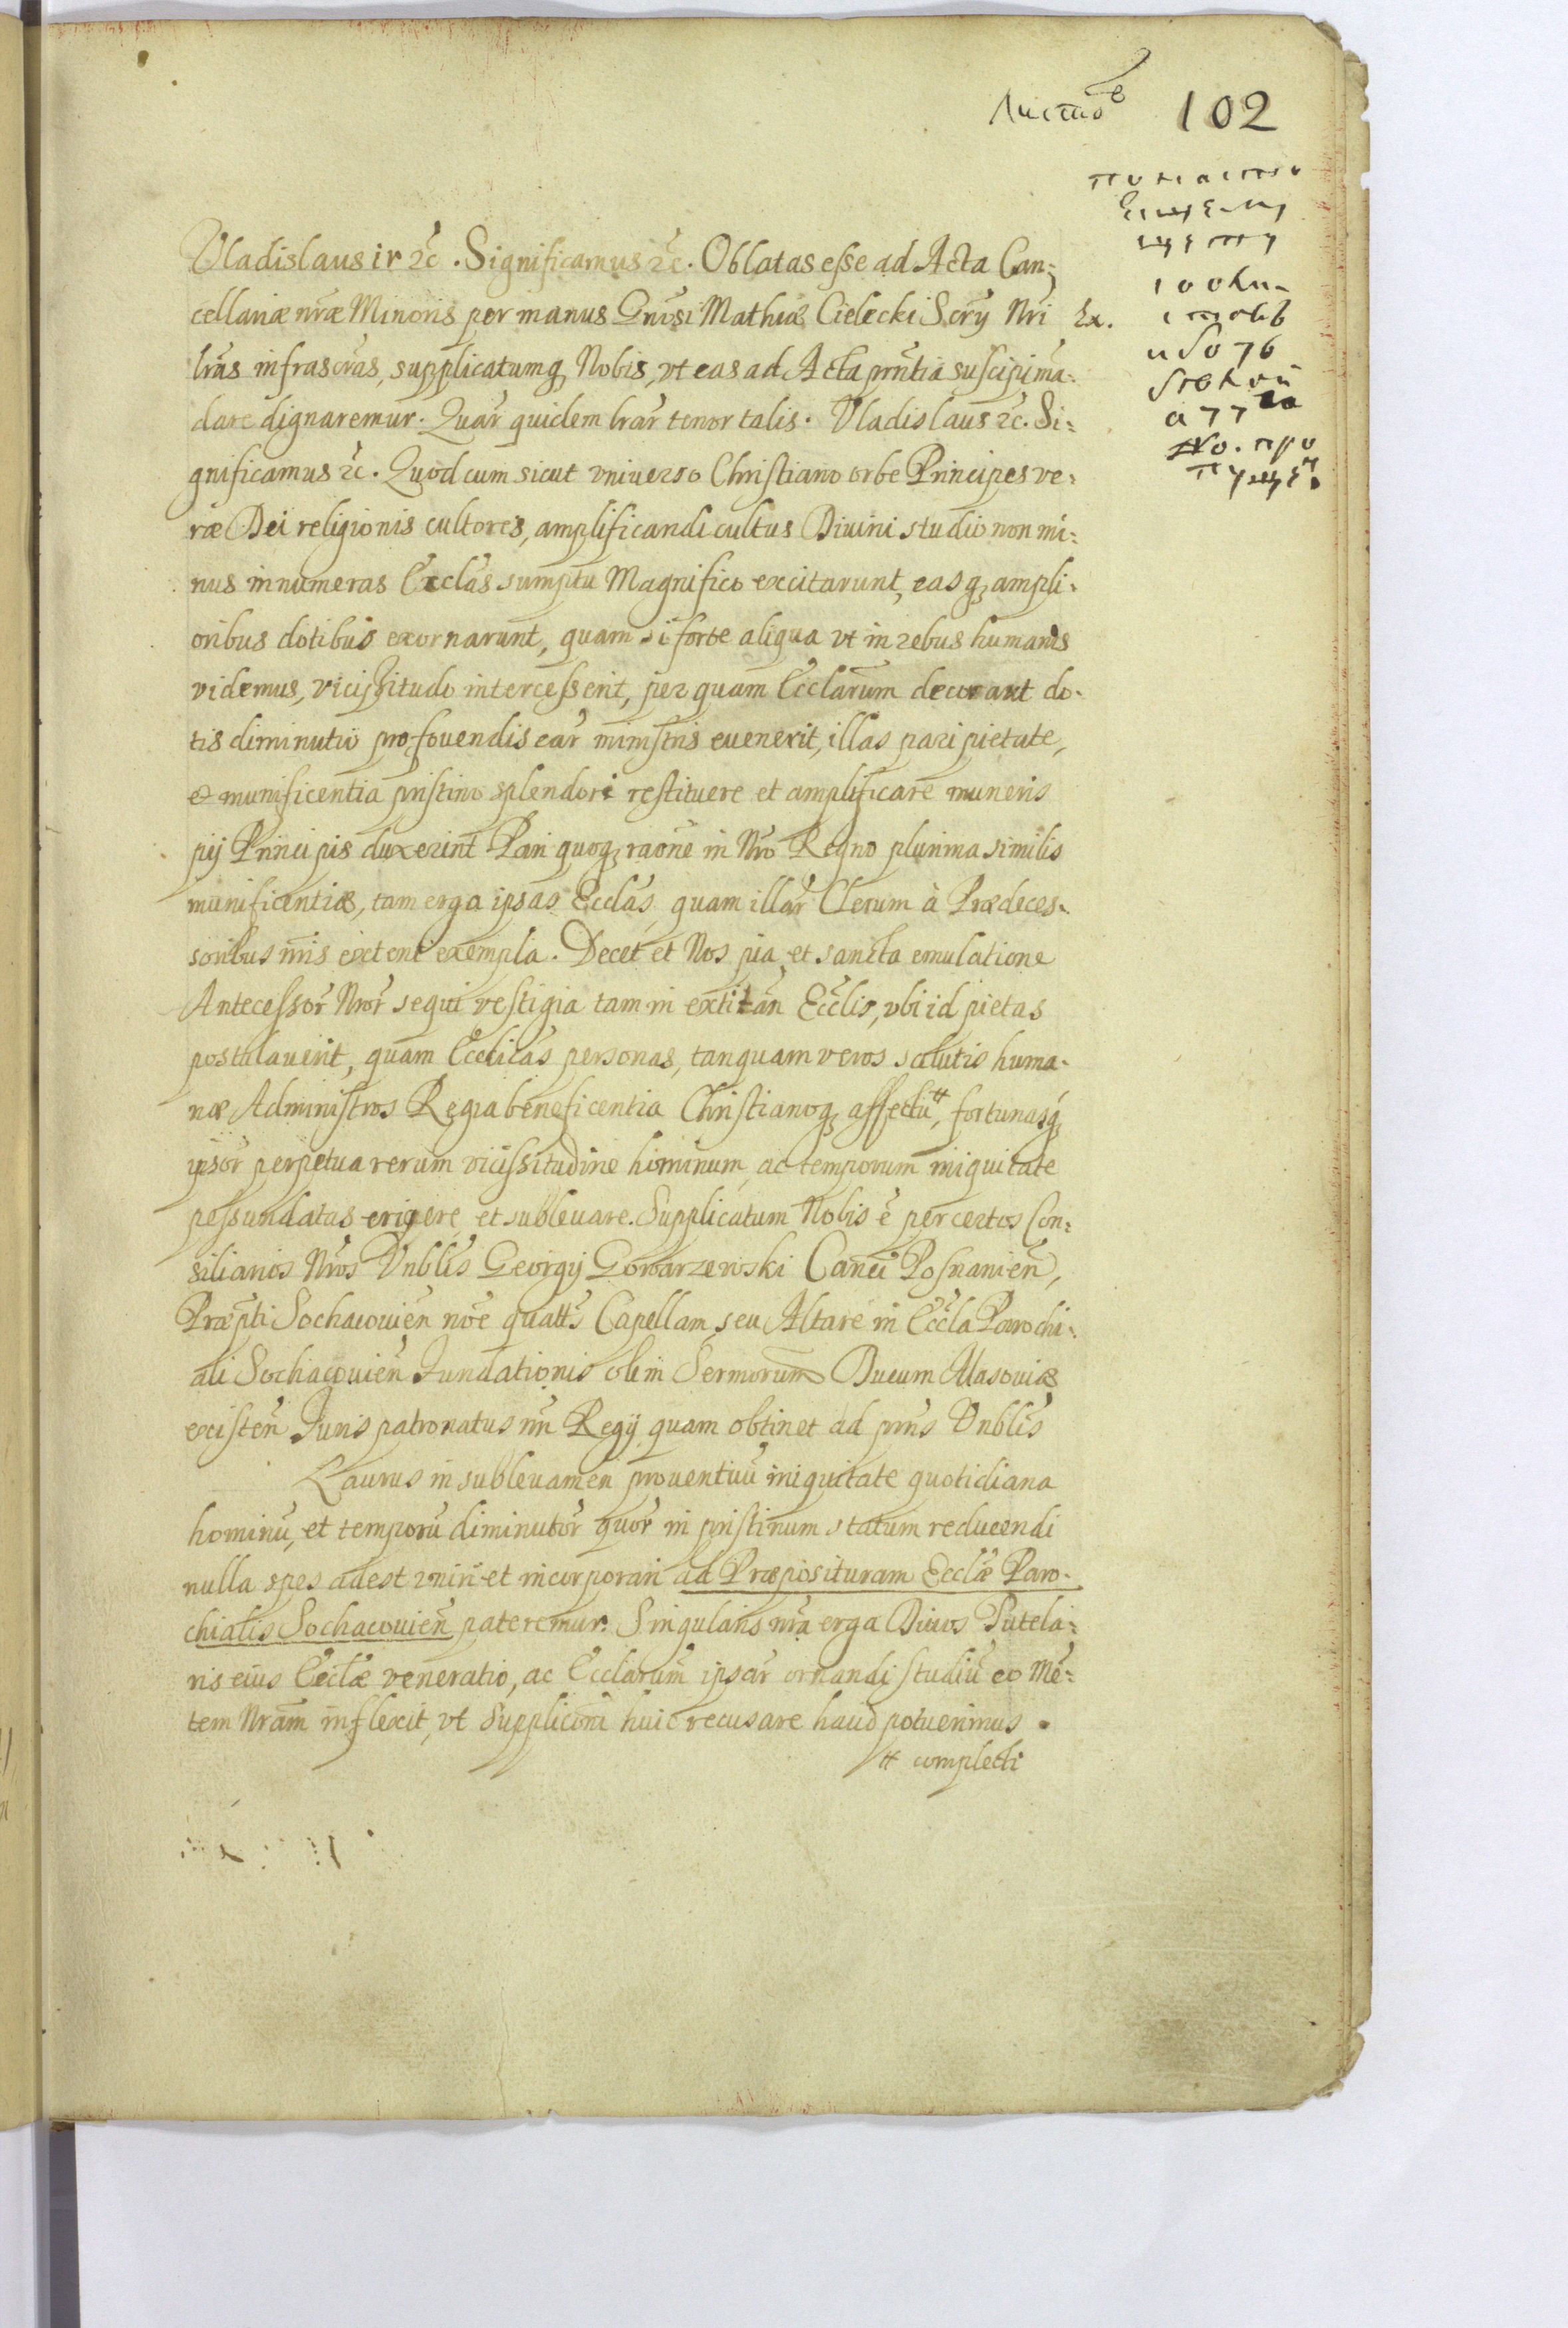 Листов 102
Vladislaus iv &c. Significamus &c. Oblatas esse ad Acta Can:
cellariæ nræ Minoris per manus Gnrosi Mathiæ Cielecki Scrij Nri Ex.
lras infrascras, supplicatumq Nobis, vt eas ad Acta prntia suscipi ma:
dare dignaremur. Quar quidem lrar tenor talis. Vladislaus &c. Si:
gnificamus &c. Quod cum sicut vniuerso Christiano orbe Principes ve:
ræ Dei religionis cultores, amplificandi cultus Diuini studio non mi:
nus innumeras Ecclas sumptu Magnifico excitarunt, easq ampli:
oribus dotibus exornarunt, quam si forte aliqua vt in rebus humanis
videmus, vicissitudo intercesserit, per quam Ecclarum decor aut do:
tis diminutio pro fovendis ear ministris euenerit, illas pari pietate,
& munificentia pristino splendori restituere et amplificare muneris
pij Principis duxerint Pari quoq raone in Nro Regno plurima similis
munificentiæ, tam erga ipsas Ecclas, quam illar Clerum à Prædeces:
soribus nris extent exempla. Decet et Nos pia et sancta emulatione
Antecessor Nror sequi vestigia tam in extitan Ecclis, vbi id pietas
postulauerit, quam Eccticas personas, tanquam veros salutis huma:
næ Administros Regia beneficentia Christianoq affectu ⌗, fortunasq
ipsor perpetua rerum vicissitudine hominum, ac temporum iniquitate
pessundatas erigere et subleuare. Supplicatum Nobis ē per certos Con:
siliarios Nros Vnblis Georgij Gowarzewski Canci Posnanien,
Præpti Sochacouien noe quatts Capellam seu Altare in Eccla Parochi:
ali Sochacouien Fundationis olim Sermorum Ducum Masouiæ
existen Iuris patronatus nri Regij quam obtinet ad prns Vnblis
Laurus in subleuamen prouentuū iniquitate quotidiana
hominū, et temporū diminutor quor in pristinum statum reducendi
nulla spes adest vniri et incorporari ad Præposituram Ecclæ Paro:
chialis Sochacouien pateremur. Singularis nra erga Diuos Tutela:
ris eius Ecclæ veneratio, ac Ecclarum ipsar ornandi studiū eo Mē:
tem Nram inflexit, vt Supplicōni huic recusare haud potuerimus.
⌗ complecti